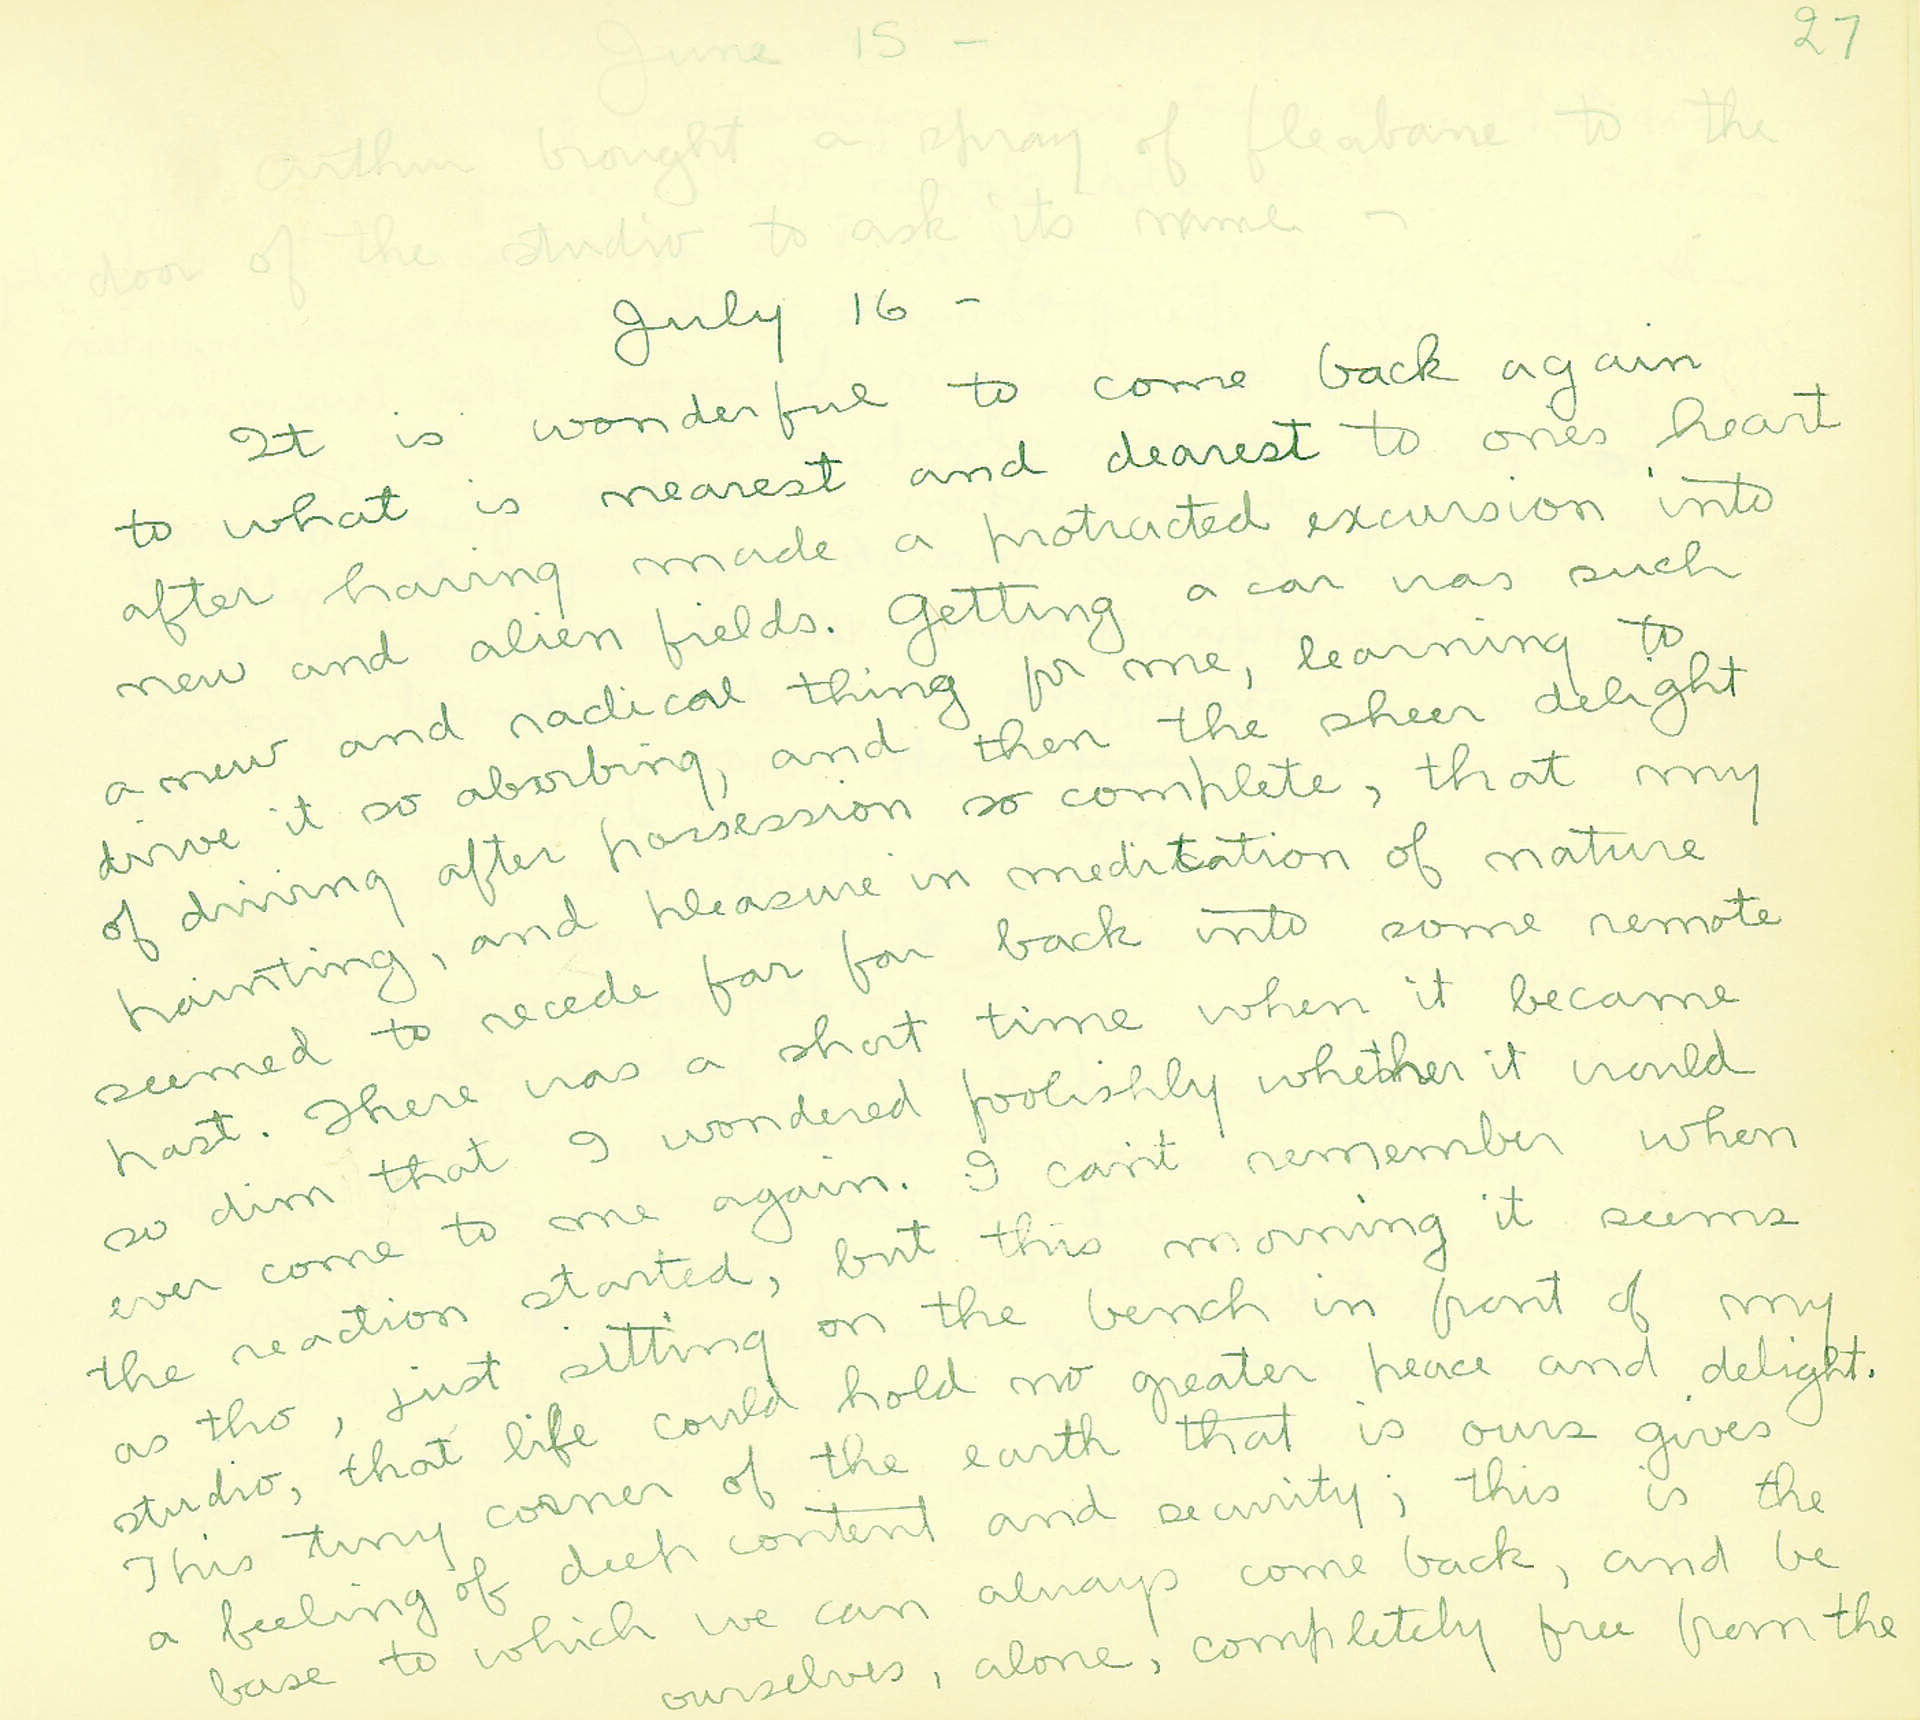 27
June 15 -
Arthur brought a spray of fleabane to the
door of the studio to ask its name -
July 16 -
It is wonderful to come back again
to what is nearest and dearest to ones heart
after having made a protracted excursion into
new and alien fields. Getting a car was such
a new and radical thing for me, learning to
drive it so absorbing, and then the sheer delight
of driving after possession so complete, that my
painting, and pleasure in meditation of nature
seemed to recede far far back into some remote
past. There was a short time when it became
so dim that I wondered foolishly whether it would
ever come to me again. I can't remember when
the reaction started, but this morning it seems
as tho, just sitting on the bench in front of my
studio, that life could hold no greater peace and delight.
This tiny corner of the earth that is ours gives
a feeling of deep content and security; this is the
base to which we can always come back, and be
ourselves, alone, completely free from the